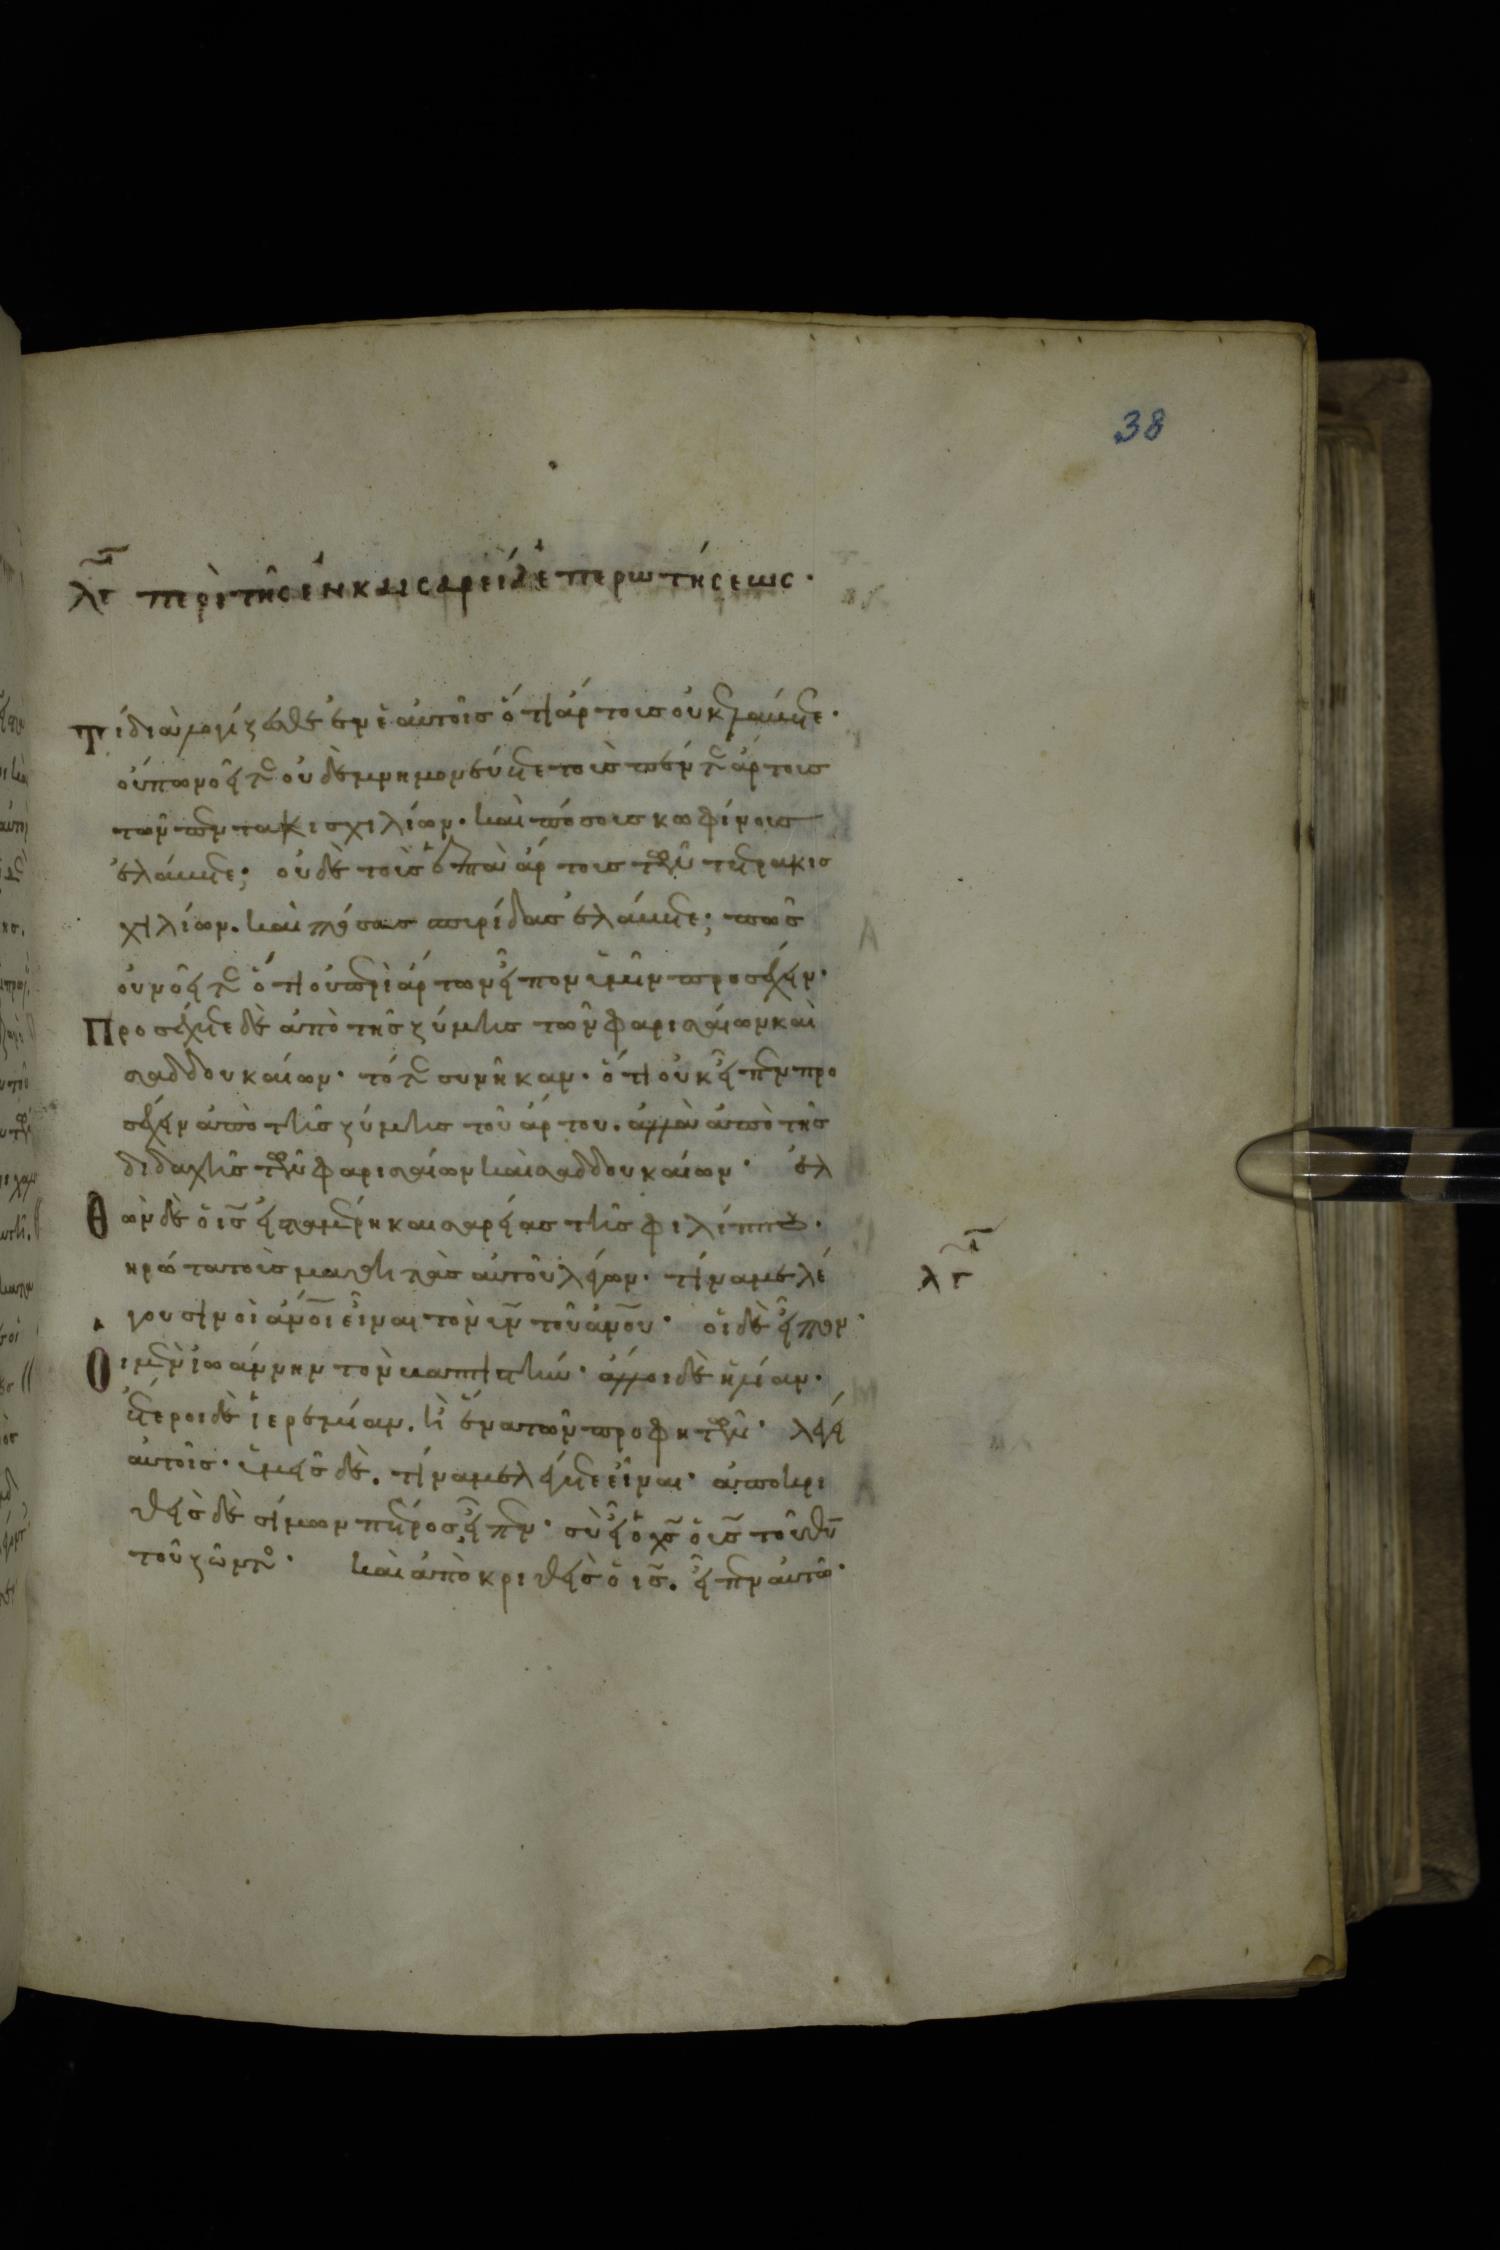 38
λγ περὶ τῆς ἐν καισαρείᾳ ἐπερωτήσεως·
Τί διαλογίζεσθε ἐν ἑαυτοῖς ὅτι ἄρτους οὐκ ἐλάβετε·
οὔπω νοεῖτε οὐδὲ μνημονεύετε τοὺς πέντε ἄρτους
τῶν πεντακισχιλίων. καὶ πόσους κωφίνους
ἐλάβετε; οὐδὲ τοὺς ἑπτὰ ἄρτους τῶν τετρακισ
χιλίων. καὶ πόσας σπυρίδας ἐλάβετε; πῶς
οὐ νοεῖτε ὅτι οὐ περὶ ἄρτων εἶπον ὑμῖν προσέχειν·
Προσέχετε δὲ ἀπὸ τῆς ζύμης τῶν φαρισαίων καὶ
σαδδουκαίων· τότε συνῆκαν· ὅτι οὐκ εἶπεν προ
σέχειν ἀπὸ τῆς ζύμης τοῦ ἄρτου. ἀλλὰ ἀπὸ τῆς
διδαχῆς τῶν φαρισαίων καὶ σαδδουκαίων· ἐλ
Θὼν δὲ ὁ ις εἰς τὰ μέρη καισαρείας τῆς φιλίππου·
ἠρώτα τοὺς μαθητὰς αὐτοῦ λέγων· τίνα με λέ
γουσιν οἱ ανοι εἶναι τὸν υν τοῦ ανου· οἱ δὲ εἶπον·
Οἱ μὲν ἰωάννην τὸν βαπτιστήν· ἄλλοι δὲ ἠλίαν·
ἕτεροι δὲ ἱερεμίαν. ἢ ἕνα τῶν προφητῶν· λέγει
αὐτοῖς· ὑμεῖς δὲ. τίνα με λέγετε εἶναι· ἀποκρι
θεὶς δὲ σίμων πέτρος εἶπεν· σὺ εἶ ὁ χς ὁ υς τοῦ θυ
τοῦ ζῶντος· καὶ ἀποκριθεὶς ὁ ις. εἶπεν αὐτῷ·
λγ